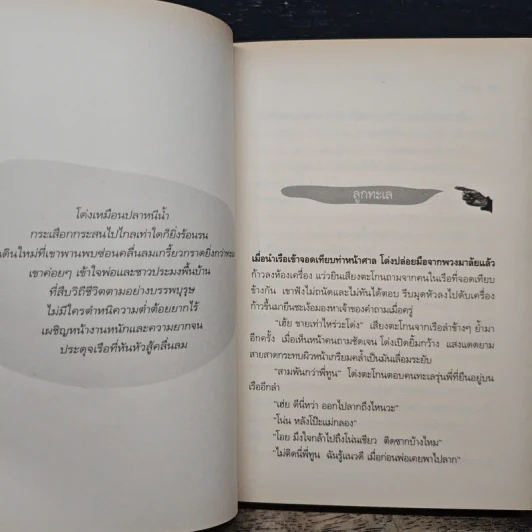 โด่งเหมือนปลาหนีน้ำ
กระเสือกกระสนไปไกลเท่าใดก็ยิ่งร้อนรน
เดินใหม่ที่เขาพานพบซ่อนคลื่นลมเกรี้ยวกราดยิ่งกว่าทะ
เขาค่อยๆ เข้าใจพ่อและชาวประมงพื้นบ้าน
ที่สืบวิถีชีวิตตามอย่างบรรพบุรุษ
ไม่มีใครตำหนิความต่ำต้อยยากไร้
เผชิญหน้างานหนักและความยากจน
ประดุจเรือที่หันหัวสู้คลื่นลม
ลูกทะเล
เมื่อนำเรือเข้าจอดเทียบท่าหน้าศาล โด่งปล่อยมือจากพวงมาลัยแล้ว
ก้าวลงห้องเครื่อง แว่วยินเสียงตะโกนถามจากคนในเรือที่จอดเทียบ
ข้างกัน เขาฟังไม่ถนัดและไม่ทันได้ตอบ รีบมุดหัวลงไปดับเครื่อง
ก้าวขึ้นมายืนชะเง้อมองหาเจ้าของคำถามเมื่อครู่
"เฮ้ย ขายเท่าไหร่วะโด่ง" เสียงตะโกนจากเรือลำข้างๆ ย้ำมา
อีกครั้ง เมื่อเห็นหน้าคนถามชัดเจน โด่งเปิดยิ้มกว้าง แสงแดดยาม
สายสาดกระทบผิวหน้าเกรียมคล้ำเป็นมันเลื่อมระยับ
"สามพันกว่าพี่ทูน" โด่งตะโกนตอบคนทะเลรุ่นพี่ที่ยืนอยู่บน
เรืออีกลำ
"เฮ่ย ดีนี่หว่า ออกไปลากถึงไหนวะ"
"โน่น หลังโป๊ะแม่กลอง"
"โอย มึงใจกล้าไปถึงโน่นเชียว ติดซากบ้างไหม"
"ไม่ติดนี่พี่ทูน ฉันรู้แนวดี เมื่อก่อนพ่อเคยพาไปลาก"